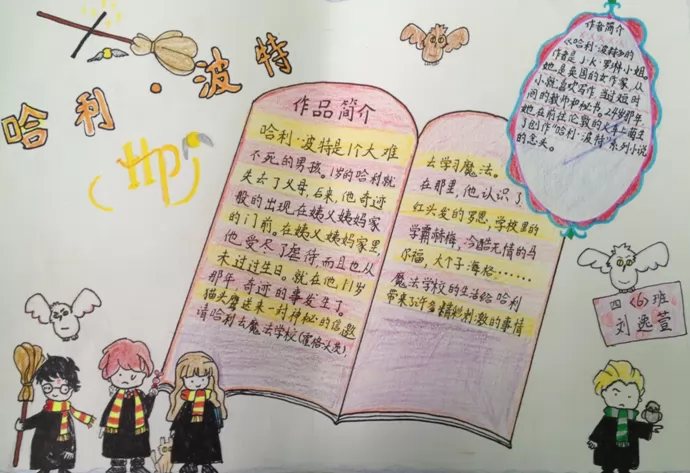 哈利·波特
HP
作品简介
哈利·波特是1个大难
不死的男孩。1岁的哈利就
失去了父母,后来,他奇迹
般的出现在姨父姨妈家
的门前。在姨父姨妈家里,
他受尽了虐待,而且也从
未过过生日。就在他11岁
那年,奇迹的事发生了。
猫头鹰送来一封神秘的信,邀
请哈利去魔法学校(霍格沃茨)
去学习魔法。
在那里,他认识了
红头发的罗恩,学校里的
学霸赫梅,冷酷无情的马
尔福,大个子海格……
魔法学校的生活给哈利
带来了许多精彩刺激的事情
作者简介
《哈利·波特》的
作者是J·K·罗林小姐。
她是英国的女作家,从
小就喜欢写作,当过短时
间的教师和秘书。24岁那年
她在前往伦敦的火车上萌发
了创作“哈利·波特”系列小说
的念头。
四(6)班
刘逸萱